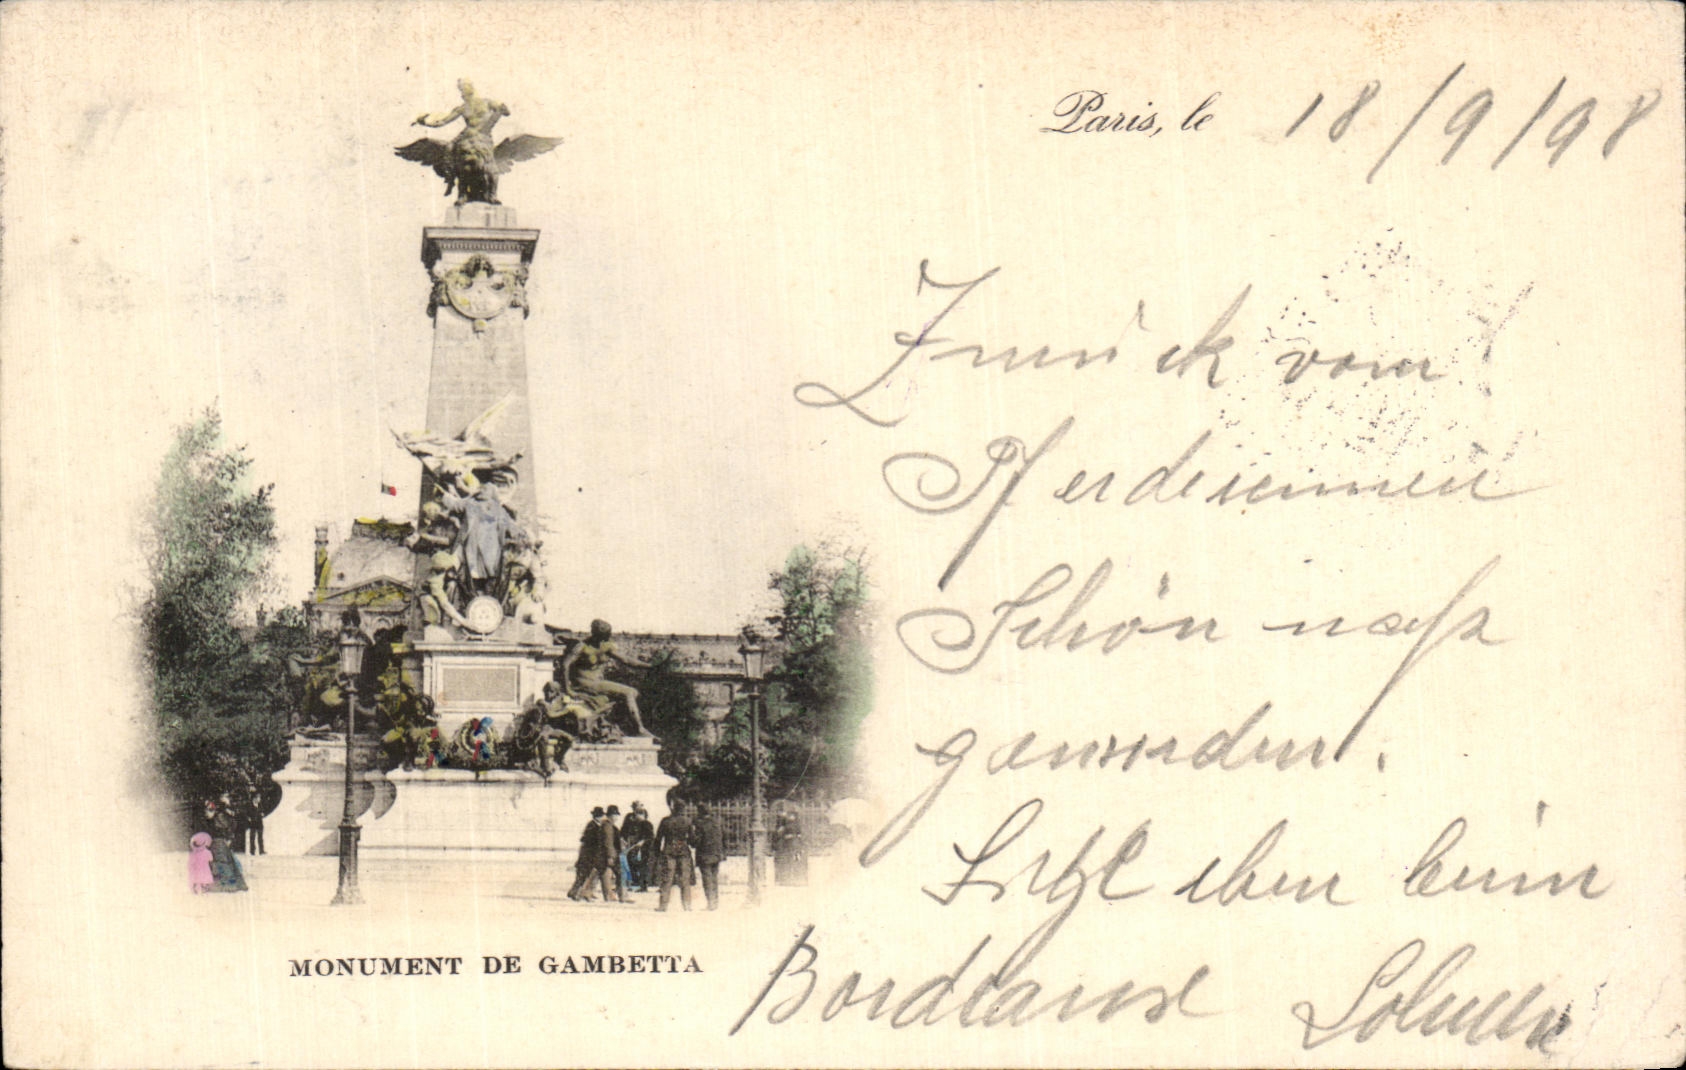 Paris, le 18/9/98
Zurück vom
Pferderennen
Schön naß
geworden.
Sitze eben beim
Bordeaux
MONUMENT DE GAMBETTA